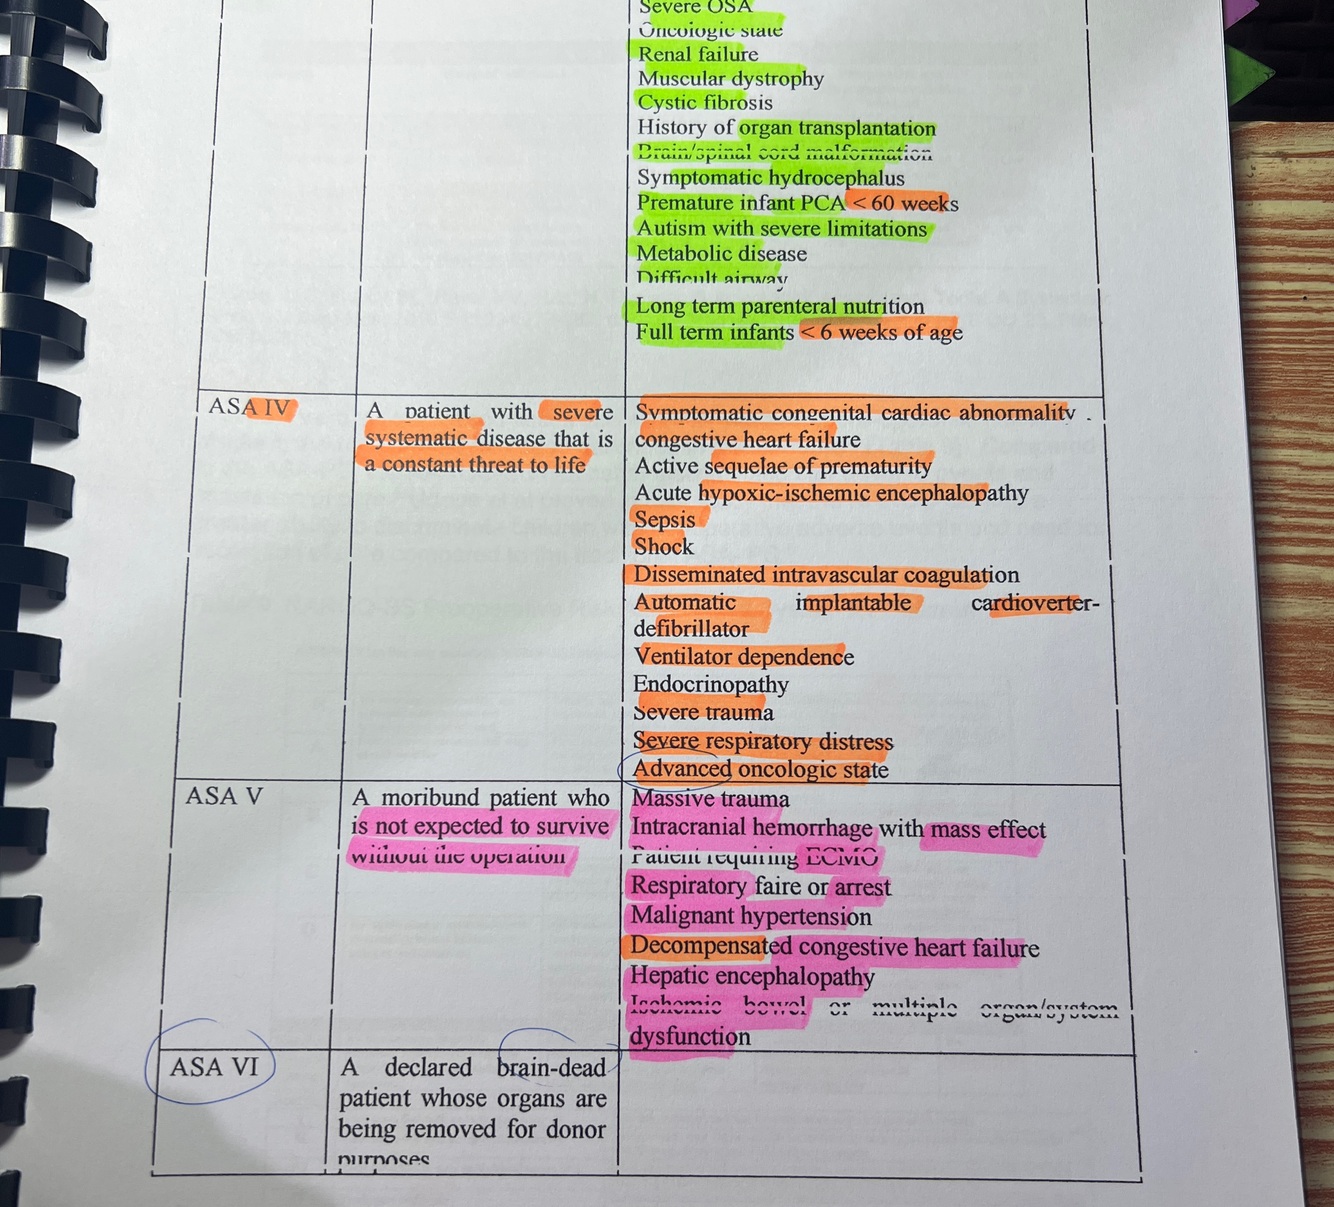 Severe OSA
Oncologic state
Renal failure
Muscular dystrophy
Cystic fibrosis
History of organ transplantation
Brain/spinal cord malformation
Symptomatic hydrocephalus
Premature infant PCA < 60 weeks
Autism with severe limitations
Metabolic disease
Difficult airway
Long term parenteral nutrition
Full term infants < 6 weeks of age
ASA IV
A patient with severe
systematic disease that is
a constant threat to life
Symptomatic congenital cardiac abnormality .
congestive heart failure
Active sequelae of prematurity
Acute hypoxic-ischemic encephalopathy
Sepsis
Shock
Disseminated intravascular coagulation
Automatic implantable cardioverter-
defibrillator
Ventilator dependence
Endocrinopathy
Severe trauma
Severe respiratory distress
Advanced oncologic state
ASA V
A moribund patient who
is not expected to survive
without the operation
Massive trauma
Intracranial hemorrhage with mass effect
Patient requiring ECMO
Respiratory faire or arrest
Malignant hypertension
Decompensated congestive heart failure
Hepatic encephalopathy
Ischemic bowel or multiple organ/system
dysfunction
ASA VI
A declared brain-dead
patient whose organs are
being removed for donor
purposes